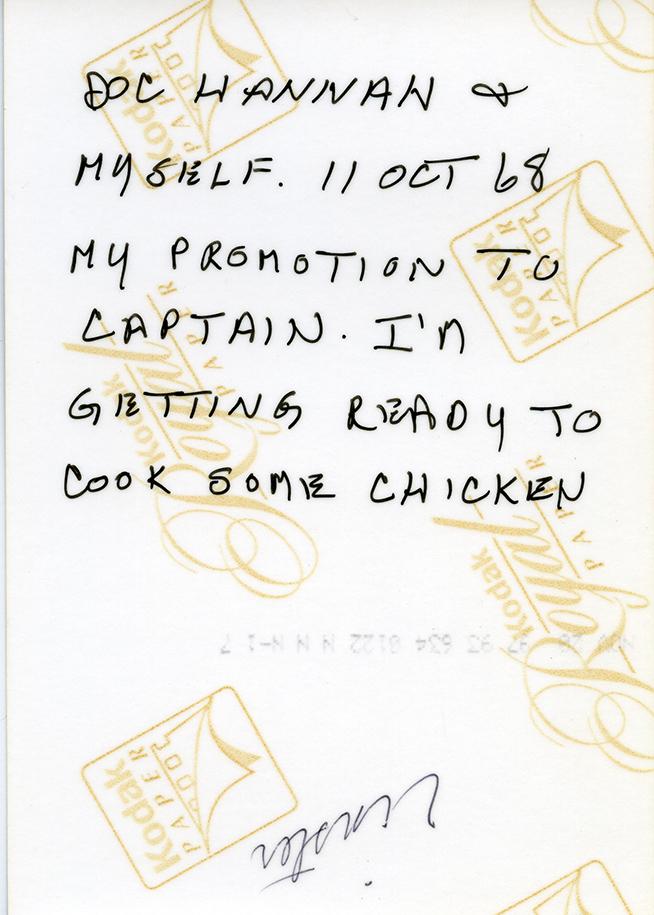 DOC HANNAH &
MYSELF. 11 OCT 68
MY PROMOTION TO
CAPTAIN. I'M
GETTING READY TO
COOK SOME CHICKEN
Kodak
PAPER
Kodak
PAPER
Kodak
Royal
PAPER
Kodak
Royal
PAPER
634 0122 N N N-1 7
Kodak
PAPER